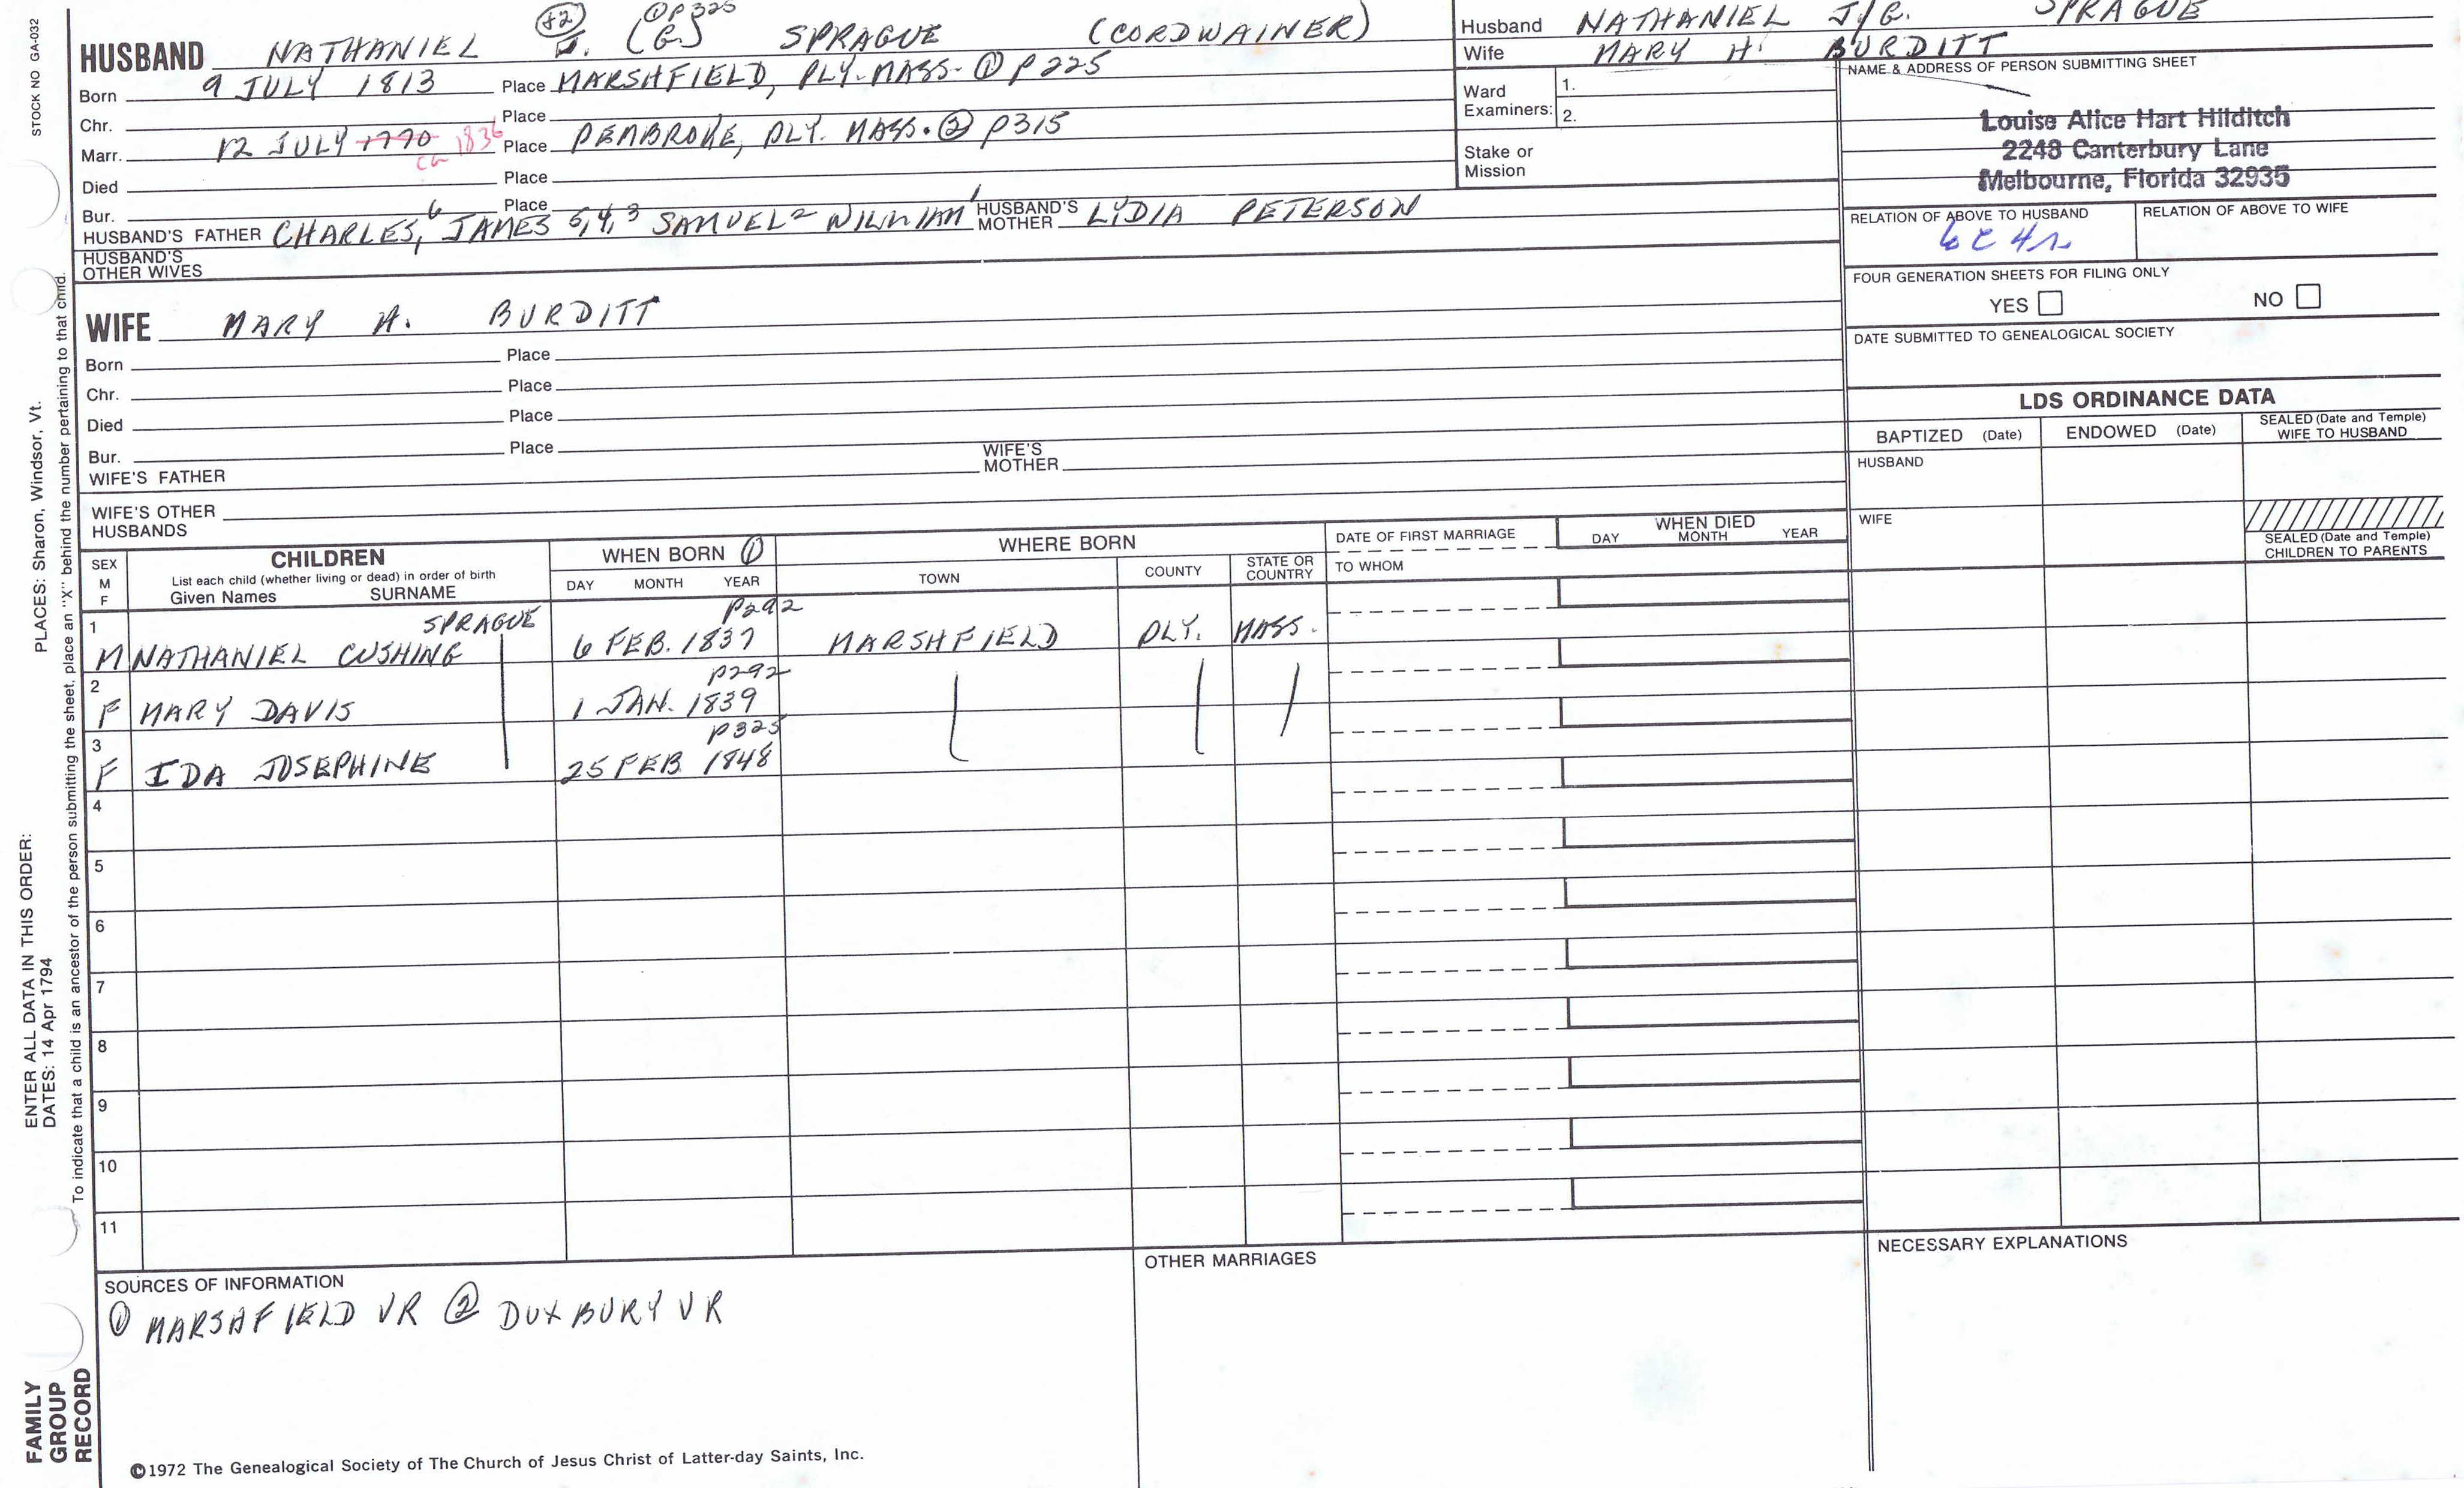 STOCK NO. GA-032
(+2) ① P325
HUSBAND NATHANIEL J. (G) SPRAGUE (CORDWAINER)
Born 9 JULY 1813 Place MARSHFIELD, PLY. MASS. ① P225
Chr. Place
Marr. 12 JULY 1770 ca 1836 Place PEMBROKE, PLY. MASS. ② P315
Died Place
Bur. Place
HUSBAND'S FATHER CHARLES6, JAMES 5,4,3 SAMUEL2 WILLIAM1 HUSBAND'S MOTHER LYDIA PETERSON
HUSBAND'S
OTHER WIVES
Husband NATHANIEL J/G. SPRAGUE
Wife MARY H. BURDITT
Ward
Examiners:
1.
2.
Stake or
Mission
NAME & ADDRESS OF PERSON SUBMITTING SHEET
Louise Alice Hart Hilditch
2248 Canterbury Lane
Melbourne, Florida 32935
RELATION OF ABOVE TO HUSBAND
6C4r
RELATION OF ABOVE TO WIFE
FOUR GENERATION SHEETS FOR FILING ONLY
YES NO
DATE SUBMITTED TO GENEALOGICAL SOCIETY
WIFE MARY H. BURDITT
Born Place
Chr. Place
Died Place
Bur. Place
WIFE'S FATHER WIFE'S MOTHER
WIFE'S OTHER
HUSBANDS
LDS ORDINANCE DATA
BAPTIZED (Date) ENDOWED (Date) SEALED (Date and Temple) WIFE TO HUSBAND
HUSBAND
WIFE
SEALED (Date and Temple)
CHILDREN TO PARENTS
SEX
M
F
CHILDREN
List each child (whether living or dead) in order of birth
Given Names SURNAME
WHEN BORN ①
DAY MONTH YEAR
WHERE BORN
TOWN COUNTY STATE OR COUNTRY
DATE OF FIRST MARRIAGE
TO WHOM
WHEN DIED
DAY MONTH YEAR
1 SPRAGUE P292
M NATHANIEL CUSHING 6 FEB. 1837 MARSHFIELD PLY. MASS.
2 P292
F MARY DAVIS 1 JAN. 1839
3 P325
F IDA JOSEPHINE 25 FEB 1848
4
5
6
7
8
9
10
11
SOURCES OF INFORMATION
① MARSHFIELD VR ② DUXBURY VR
OTHER MARRIAGES
NECESSARY EXPLANATIONS
©1972 The Genealogical Society of The Church of Jesus Christ of Latter-day Saints, Inc.
PLACES: Sharon, Windsor, Vt.
ENTER ALL DATA IN THIS ORDER:
DATES: 14 Apr 1794
To indicate that a child is an ancestor of the person submitting the sheet, place an "X" behind the number pertaining to that child.
FAMILY
GROUP
RECORD